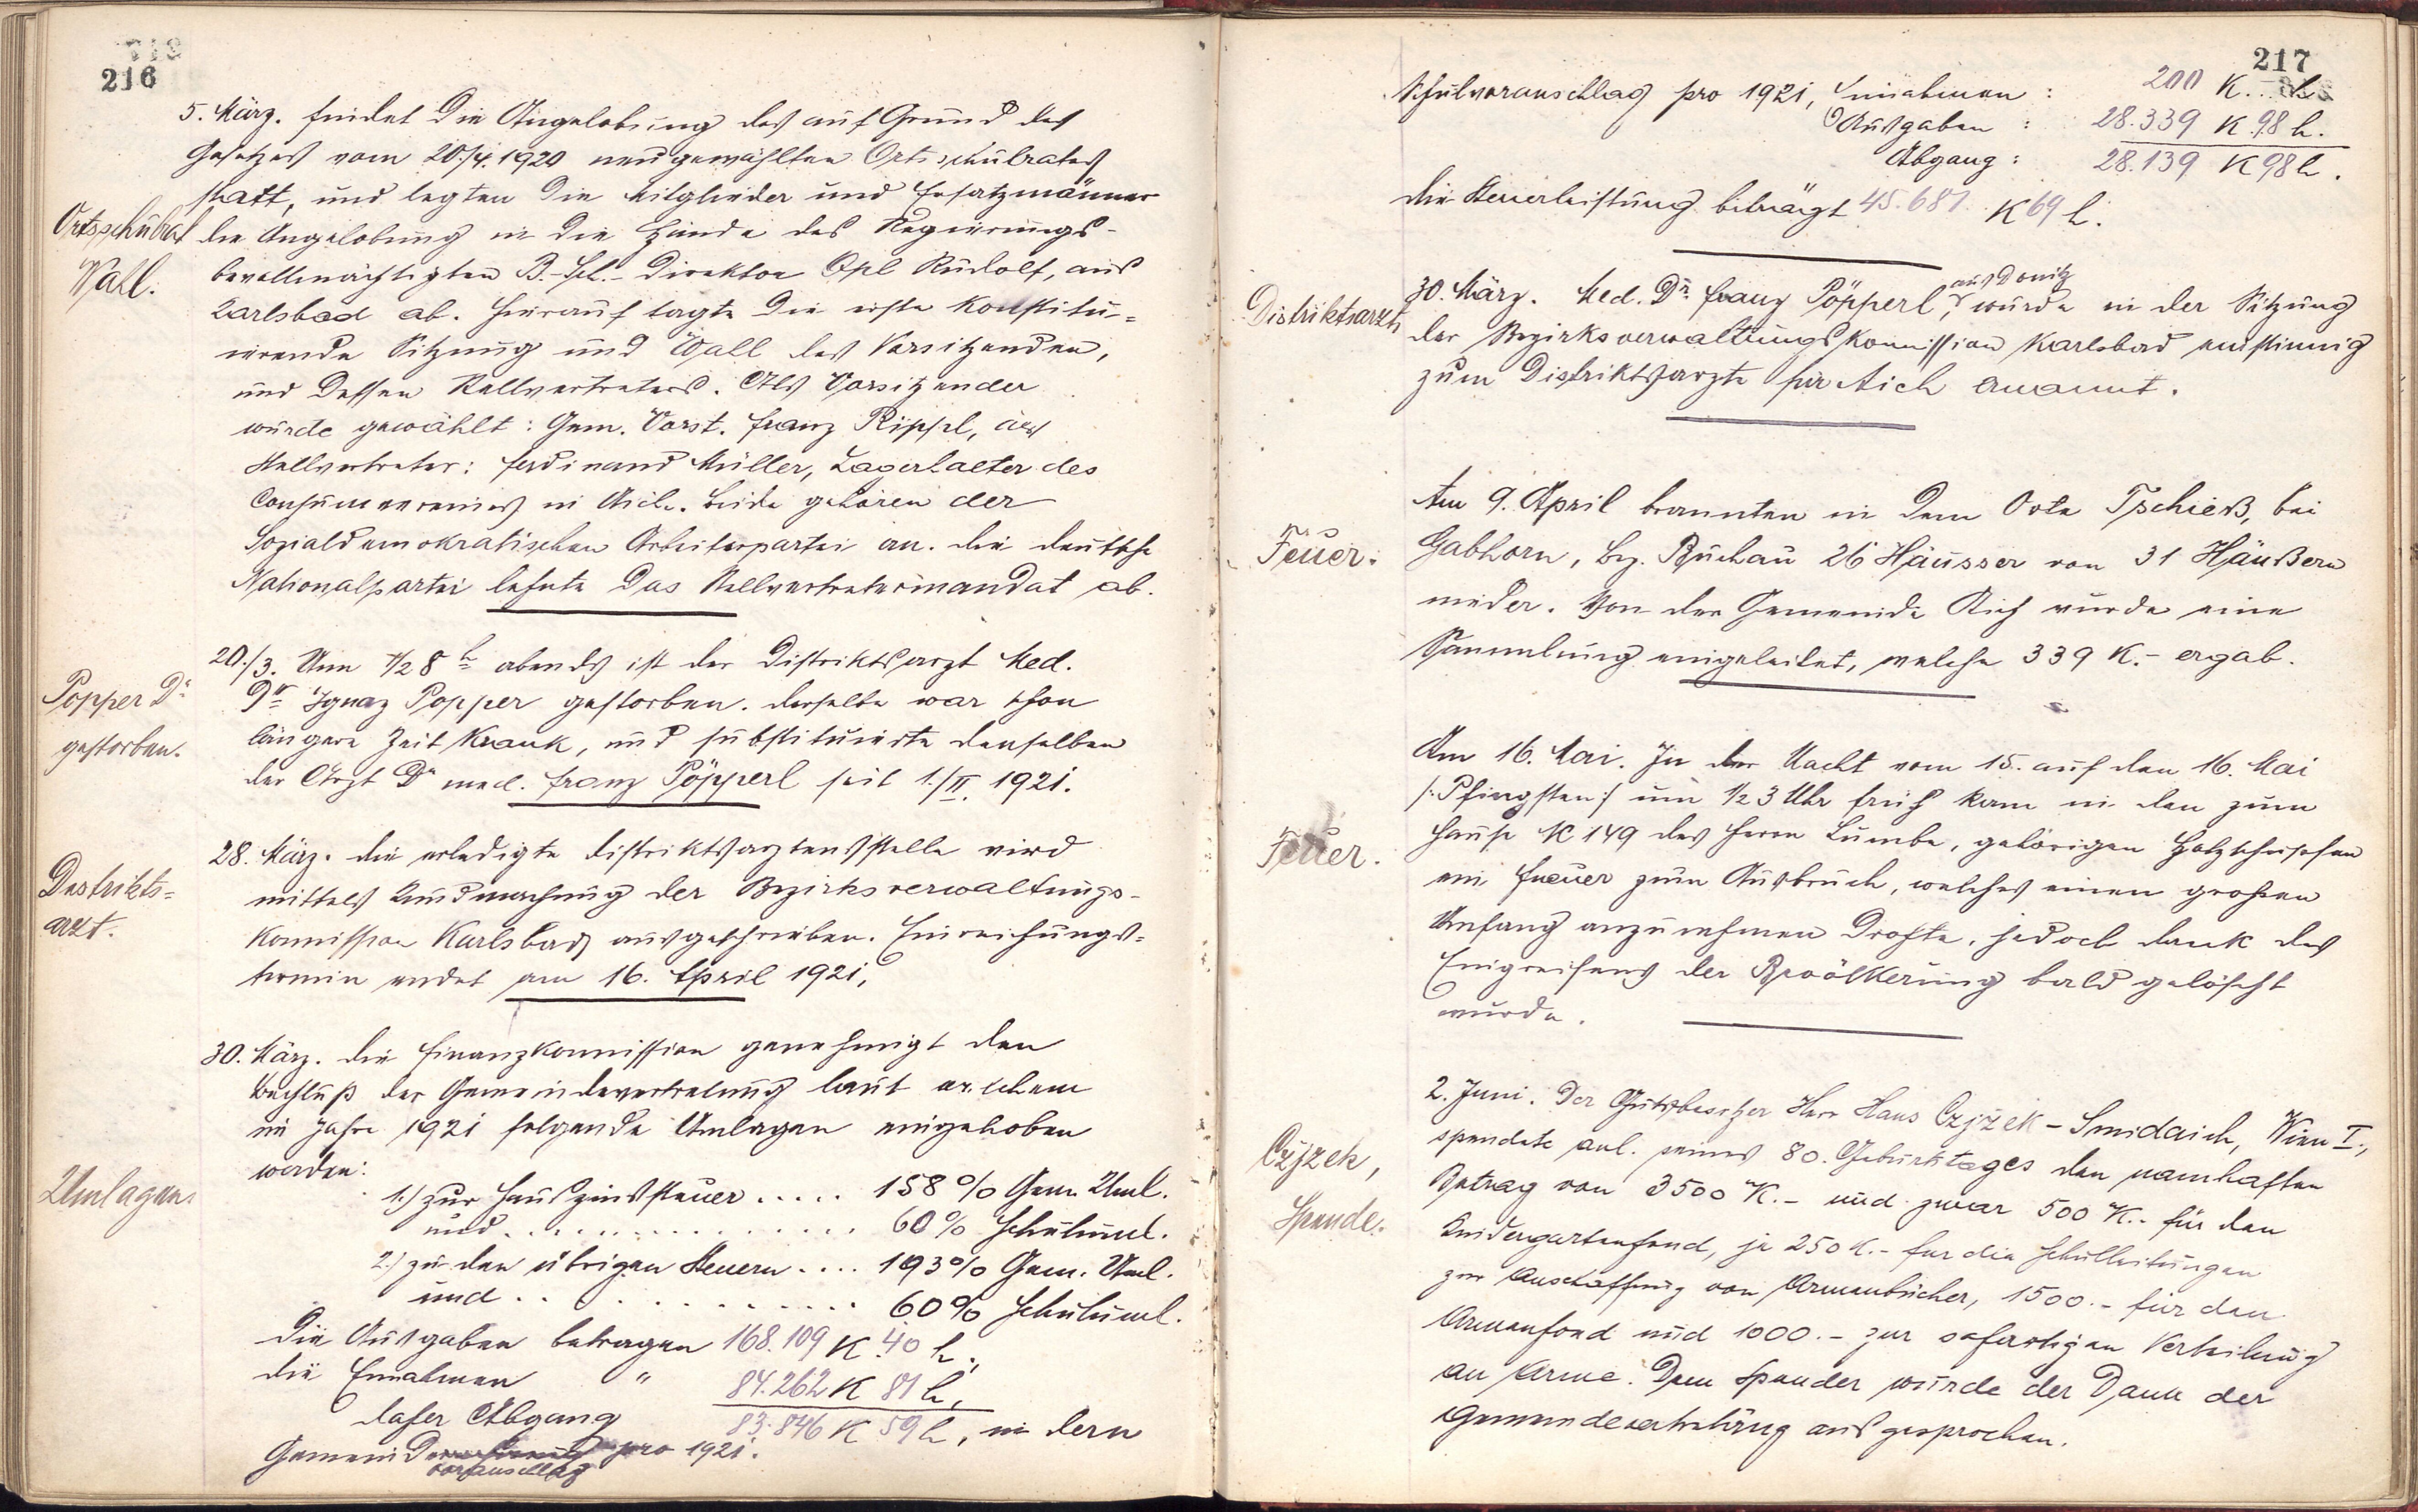 216
5. März. findet die Angelobung des auf Grund des
Gesetzes vom 20./4. 1920 neugewählten Ortsschulrates
statt, und legten die Mitglieder und Ersatzmänner
Ortsschulrat
Wall.
die Angelobung in die Hände des Regierungs-
bevollmächtigten B.-Sch.-Direktor Opl Rudolf, aus
Karlsbad ab. Hierauf tagte die erste konstitu-
ierende Sitzung und Wall des Vorsitzenden,
und dessen Stellvertreters. Als Vorsitzender
wurde gewählt: Gem. Vorst. Franz Rippl, als
Stellvertreter: Ferdinand Müller, Lagerhalter des
Consumvereines in Aich. Beide gehören der
Sozialdemokratischen Arbeiterpartei an. Die deutsche
Nationalpartei lehnte das Stellvertretermandat ab.
Popper Dr
gestorben.
20./3. Um 1/2 8 h abends ist der Distriktsarzt Med.
Dr Ignaz Popper gestorben. Derselbe war schon
längere Zeit krank, und substituierte denselben
der Arzt Dr med. Franz Pöpperl seit 1./II. 1921.
Destrikts-
arzt.
28. März. Die erledigte Distriktsarztensstelle wird
mittels Kundmachung der Bezirksverwaltungs-
kommission Karlsbad ausgeschrieben. Einreichungs-
termin endet am 16. April 1921.
Umlagen.
30. März. Die Finanzkommission genehmigt den
Beschluß der Gemeindevertretung laut welchem
im Jahre 1921 folgende Umlagen eingehoben
werden:
1.) zur Hauszinssteuer ..... 158 % Gem. Uml.
und ............... 60 % Schuluml.
2.) zu den übrigen Steuern .... 193 % Gem. Uml.
und ............... 60 % Schuluml.
Die Ausgaben betragen 168.109 K 40 h,
die Einnahmen " 84.262 K 81 h,
daher Abgang 83.846 K 59 h, in dern
Gemeindevoranschlag pro 1921.
217
Schulvoranschlag pro 1921, Einnahmen : 200 K... h
Ausgaben : 28.339 K. 98 h.
Abgang : 28.139 K 98 h.
Die Steuerleistung beträgt 45.681 K 69 h.
Distriktsarzt
30. März. Med. Dr. Franz Pöpperl, aus Donitz wurde in der Sitzung
der Bezirksverwaltungskommission Karlsbad einstimmig
zum Distriktsarzte für Aich ernannt.
Feuer.
Am 9. April brannten in dem Orte Tschieß, bei
Gabhorn, Bez. Buchau 26 Häusser von 31 Häußern
nieder. Von der Gemeinde Aich wurde eine
Sammlung eingeleitet, welche 339 K.- ergab.
Feuer.
Am 16. Mai. In der Nacht vom 15. auf den 16. Mai
/:Pfingsten:/ um 1/2 3 Uhr früh kam in den zum
Hause № 149 des Herrn Lumbe, gehörigen Holzschupfen
ein Feuer zum Ausbruch, welches einen großen
Umfang anzunehmen drohte, jedoch dank des
Eingreifens der Bevölkerung bald gelöscht
wurde.
Czjzek,
Spende.
2. Juni. Der Gutsbesitzer Herr Hans Czjzek-Smidaich, Wien I.,
spendete anl. seines 80. Geburtstages den namhaften
Betrag von 3500 K.- und zwar 500 K.- für den
Kindergartenfond, je 250 K.- für die Schulleitungen
zur Anschaffung von Armenbücher, 1500.- für den
Armenfond und 1000.- zur sofortigen Verteilung
an Arme. Dem Spender wurde der Dank der
Gemeindevertretung ausgesprochen.